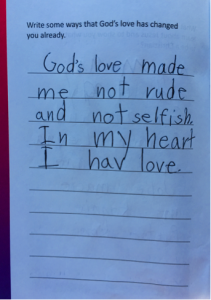 Write some ways that God's love has changed
you already.
God's love made
me not rude
and not selfish.
In my heart
I hav love.